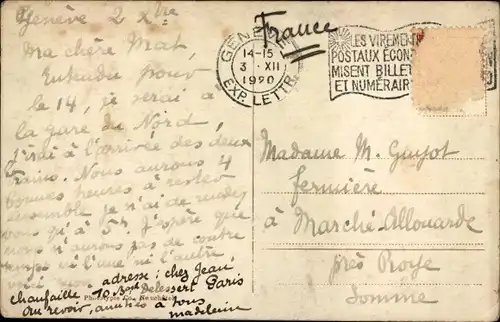 Genève 2 Xbre
Ma chère Mat,
Entendu pour
le 14, je serai à
la gare du Nord,
j'irai à l'arrivée des deux
trains. Nous aurons 4
bonnes heures à rester
ensemble je n'ai de rendez
vous qu'à 5h. J'espère que
nous n'aurons pas de contre
temps ni l'une ni l'autre,
adresse : chez Jean
Chaufaille, 10 Bard Delessert Paris
Au revoir, amitiés à vous
Madeleine
France
GENÈVE
14-15
3 XII
1920
EXP. LETTR.
LES VIREMENT
POSTAUX ÉCONO
MISENT BILLET
ET NUMÉRAIR
Madame M. Guyot
fermière
à Marché-Allouarde
près Roye
Somme